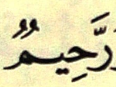 رَّحِيمٌ